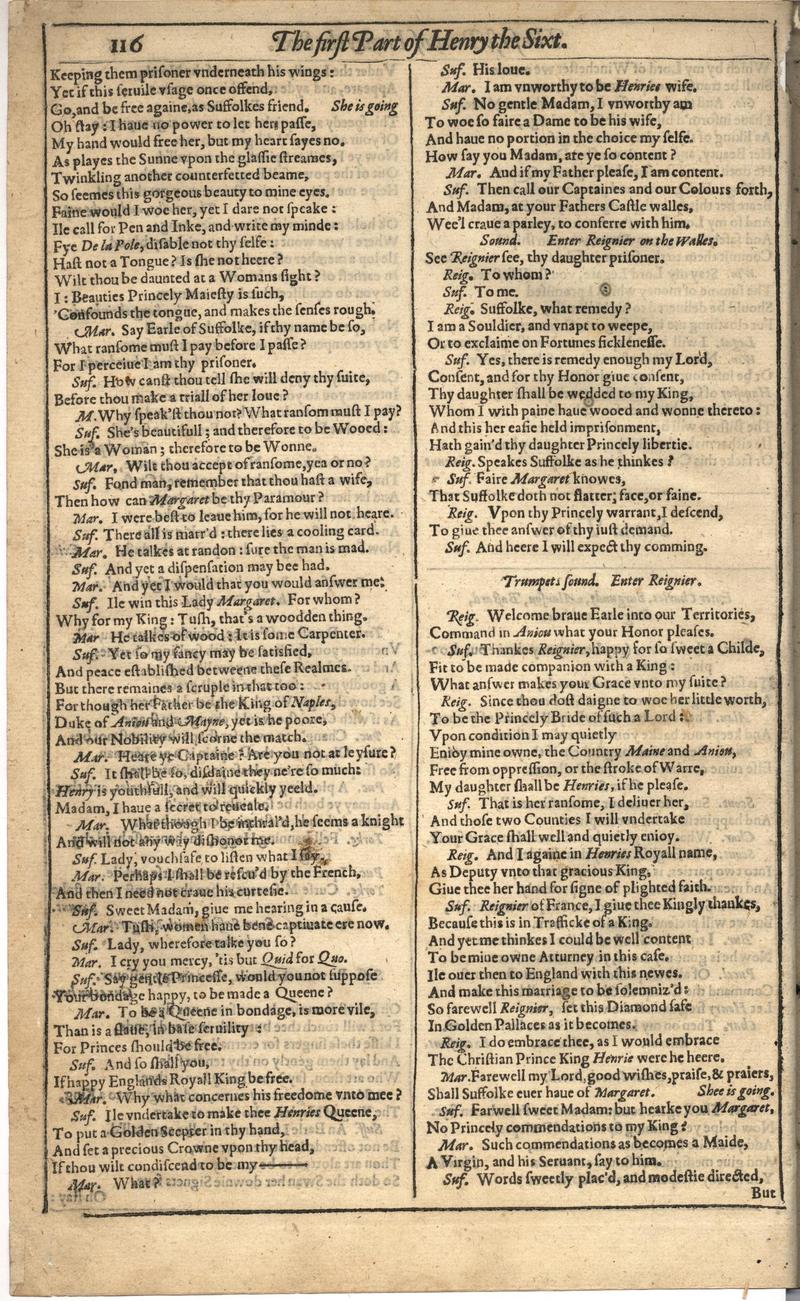 116 The firſt Part of Henry the Sixt.
Keeping them priſoner vnderneath his wings:
Yet if this ſeruile vſage once offend,
Go,and be free againe,as Suffolkes friend. She is going
Oh ſtay: I haue no power to let her paſſe,
My hand would free her, but my heart ſayes no.
As playes the Sunne vpon the glaſſie ſtreames,
Twinkling another counterfetted beame,
So ſeemes this gorgeous beauty to mine eyes.
Faine would I woe her, yet I dare not ſpeake:
Ile call for Pen and Inke, and write my minde:
Fye De la Pole, diſable not thy ſelfe:
Haſt not a Tongue? Is ſhe not heere?
Wilt thou be daunted at a Womans ſight?
I: Beauties Princely Maieſty is ſuch,
'Confounds the tongue, and makes the ſenſes rough.
Mar. Say Earle of Suffolke, if thy name be ſo,
What ranſome muſt I pay before I paſſe?
For I perceiue I am thy priſoner.
Suf. How canſt thou tell ſhe will deny thy ſuite,
Before thou make a triall of her loue?
M. Why ſpeak'ſt thou not? What ranſom muſt I pay?
Suf. She's beautifull; and therefore to be Wooed:
She is a Woman; therefore to be Wonne.
Mar. Wilt thou accept of ranſome,yea or no?
Suf. Fond man, remember that thou haſt a wife,
Then how can Margaret be thy Paramour?
Mar. I were beſt to leaue him, for he will not heare.
Suf. There all is marr'd: there lies a cooling card.
Mar. He talkes at randon: ſure the man is mad.
Suf. And yet a diſpenſation may bee had.
Mar. And yet I would that you would anſwer me:
Suf. Ile win this Lady Margaret. For whom?
Why for my King: Tuſh, that's a woodden thing.
Mar He talkes of wood: It is ſome Carpenter.
Suf. Yet ſo my fancy may be ſatisfied,
And peace eſtabliſhed betweene theſe Realmes.
But there remaines a ſcruple in that too:
For though her Father be the King of Naples,
Duke of Aniou and Mayne, yet is he poore,
And our Nobility will ſcorne the match.
Mar. Heare ye Captaine? Are you not at leyſure?
Suf. It ſhall be ſo, diſdaine they ne're ſo much:
Henry is youthfull, and will quickly yeeld.
Madam, I haue a ſecret to reueale.
Mar. What though I be inthral'd,he ſeems a knight
And will not any way diſhonor me.
Suf. Lady, vouchſafe to liſten what I ſay.
Mar. Perhaps I ſhall be reſcu'd by the French,
And then I need not craue his curteſie.
Suf. Sweet Madam, giue me hearing in a cauſe.
Mar. Tuſh, women haue bene captiuate ere now.
Suf. Lady, wherefore talke you ſo?
Mar. I cry you mercy, 'tis but Quid for Quo.
Suf. Say gentle Princeſſe, would you not ſuppoſe
Your bondage happy, to be made a Queene?
Mar. To be a Queene in bondage, is more vile,
Than is a ſlaue, in baſe ſeruility:
For Princes ſhould be free.
Suf. And ſo ſhall you,
If happy Englands Royall King be free.
Mar. Why what concernes his freedome vnto mee?
Suf. Ile vndertake to make thee Henries Queene,
To put a Golden Scepter in thy hand,
And ſet a precious Crowne vpon thy head,
If thou wilt condiſcend to be my——
Mar. What?
Suf. His loue.
Mar. I am vnworthy to be Henries wife.
Suf. No gentle Madam, I vnworthy am
To woe ſo faire a Dame to be his wife,
And haue no portion in the choice my ſelfe.
How ſay you Madam, are ye ſo content?
Mar. And if my Father pleaſe, I am content.
Suf. Then call our Captaines and our Colours forth,
And Madam, at your Fathers Caſtle walles,
Wee'l craue a parley, to conferre with him.
Sound. Enter Reignier on the Walles.
See Reignier ſee, thy daughter priſoner.
Reig. To whom?
Suf. To me.
Reig. Suffolke, what remedy?
I am a Souldier, and vnapt to weepe,
Or to exclaime on Fortunes fickleneſſe.
Suf. Yes, there is remedy enough my Lord,
Conſent, and for thy Honor giue conſent,
Thy daughter ſhall be wedded to my King,
Whom I with paine haue wooed and wonne thereto:
And this her eaſie held impriſonment,
Hath gain'd thy daughter Princely libertie.
Reig. Speakes Suffolke as he thinkes?
Suf. Faire Margaret knowes,
That Suffolke doth not flatter, face,or faine.
Reig. Vpon thy Princely warrant,I deſcend,
To giue thee anſwer of thy iuſt demand.
Suf. And heere I will expect thy comming.
Trumpets ſound. Enter Reignier.
Reig. Welcome braue Earle into our Territories,
Command in Aniou what your Honor pleaſes.
Suf. Thankes Reignier, happy for ſo ſweet a Childe,
Fit to be made companion with a King:
What anſwer makes your Grace vnto my ſuite?
Reig. Since thou doſt daigne to woe her little worth,
To be the Princely Bride of ſuch a Lord:
Vpon condition I may quietly
Enioy mine owne, the Country Maine and Aniou,
Free from oppreſſion, or the ſtroke of Warre,
My daughter ſhall be Henries, if he pleaſe.
Suf. That is her ranſome, I deliuer her,
And thoſe two Counties I will vndertake
Your Grace ſhall well and quietly enioy.
Reig. And I againe in Henries Royall name,
As Deputy vnto that gracious King,
Giue thee her hand for ſigne of plighted faith.
Suf. Reignier of France, I giue thee Kingly thankes,
Becauſe this is in Trafficke of a King.
And yet me thinkes I could be well content
To be mine owne Atturney in this caſe.
Ile ouer then to England with this newes.
And make this marriage to be ſolemniz'd:
So farewell Reignier, ſet this Diamond ſafe
In Golden Pallaces as it becomes.
Reig. I do embrace thee, as I would embrace
The Chriſtian Prince King Henrie were he heere.
Mar. Farewell my Lord, good wiſhes,praiſe,& praiers,
Shall Suffolke euer haue of Margaret. Shee is going.
Suf. Farwell ſweet Madam: but hearke you Margaret,
No Princely commendations to my King?
Mar. Such commendations as becomes a Maide,
A Virgin, and his Seruant, ſay to him.
Suf. Words ſweetly plac'd, and modeſtie directed,
But